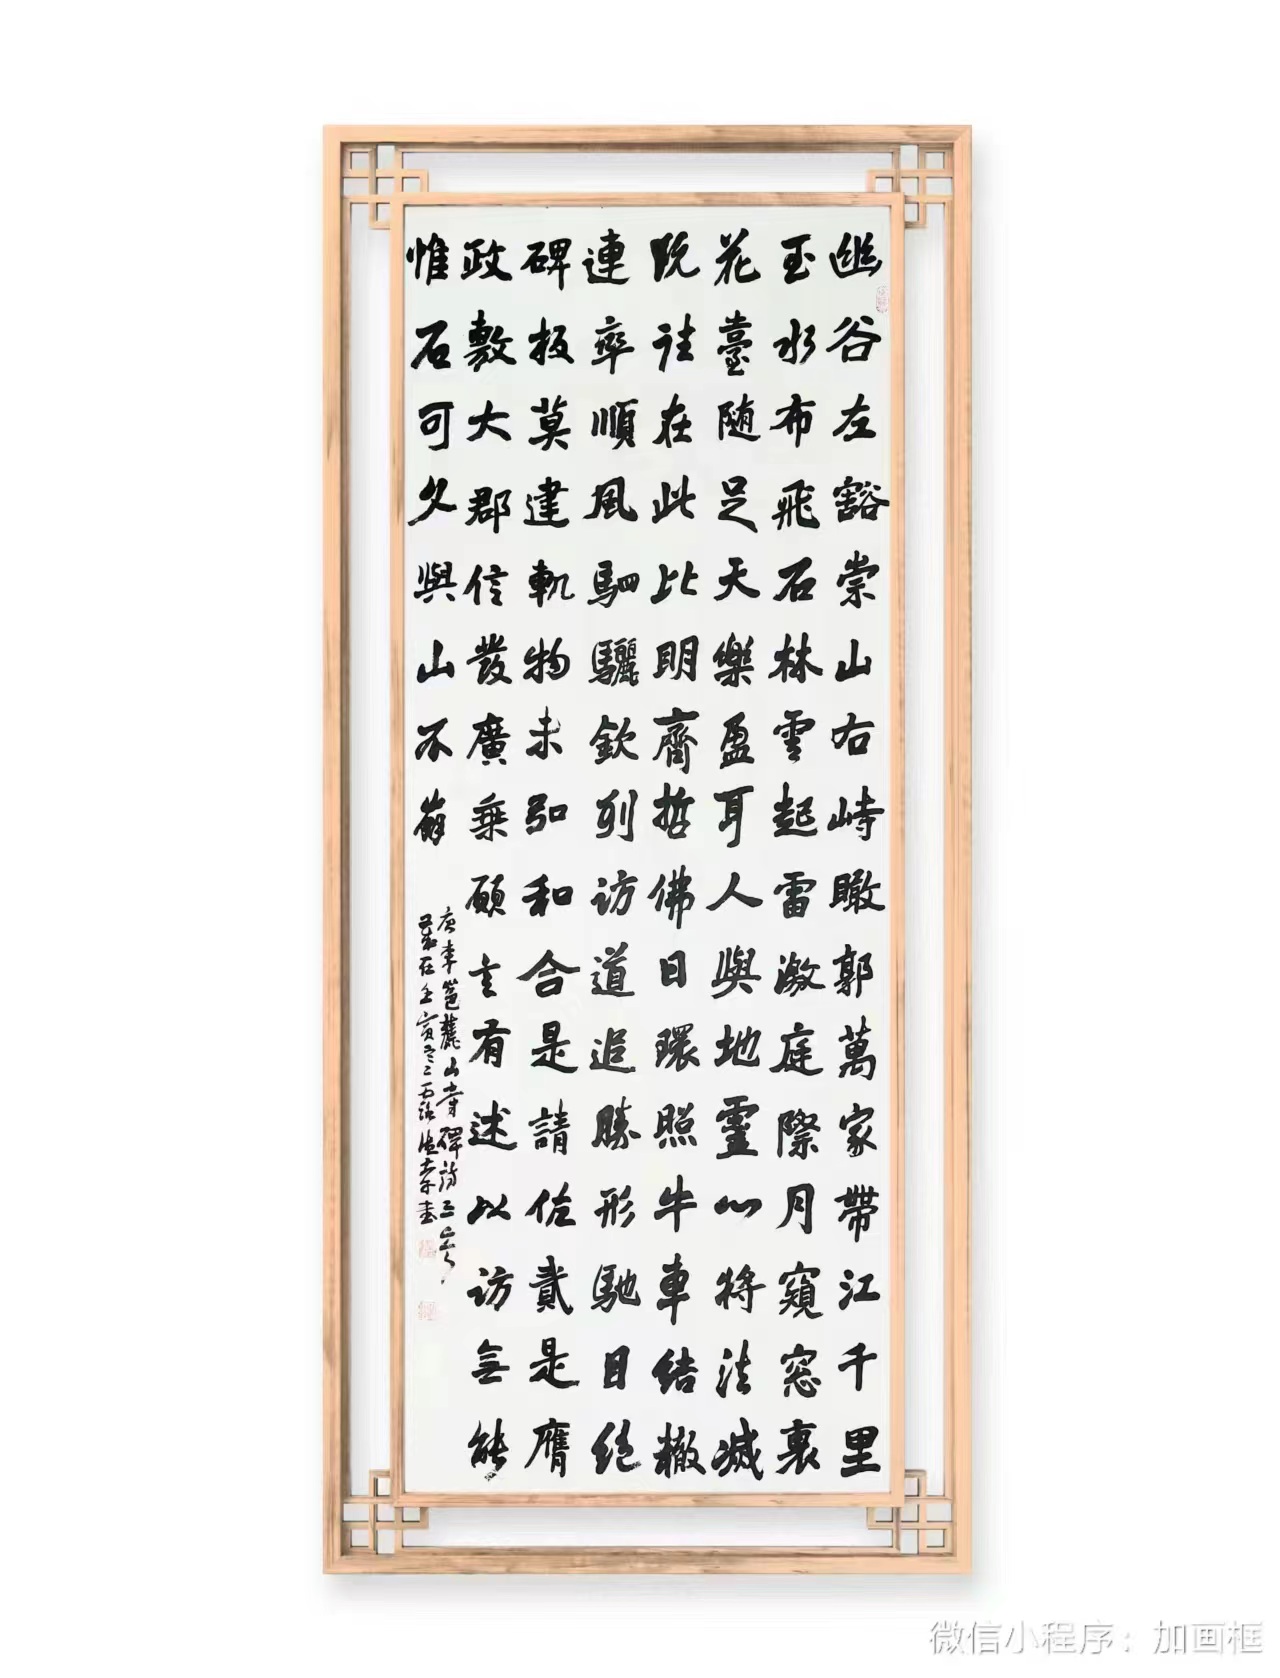 幽谷左豁崇山右峙瞰郭萬家帶江千里
玉水布飛石林雲起雷激庭際月窺窓裏
花臺随足天樂盈耳人與地靈心將法滅
既往在此比明齊哲佛日環照牛車結轍
連率順風駟驪欽列訪道追勝形馳目絕
碑板莫建軌物未弘和合是請佐貳是膺
政敷大郡信發廣乘願言有述以訪無能
惟石可久與山不崩
唐李邕麓山寺碑詩三
石壬寅冬書
微信小程序：加画框